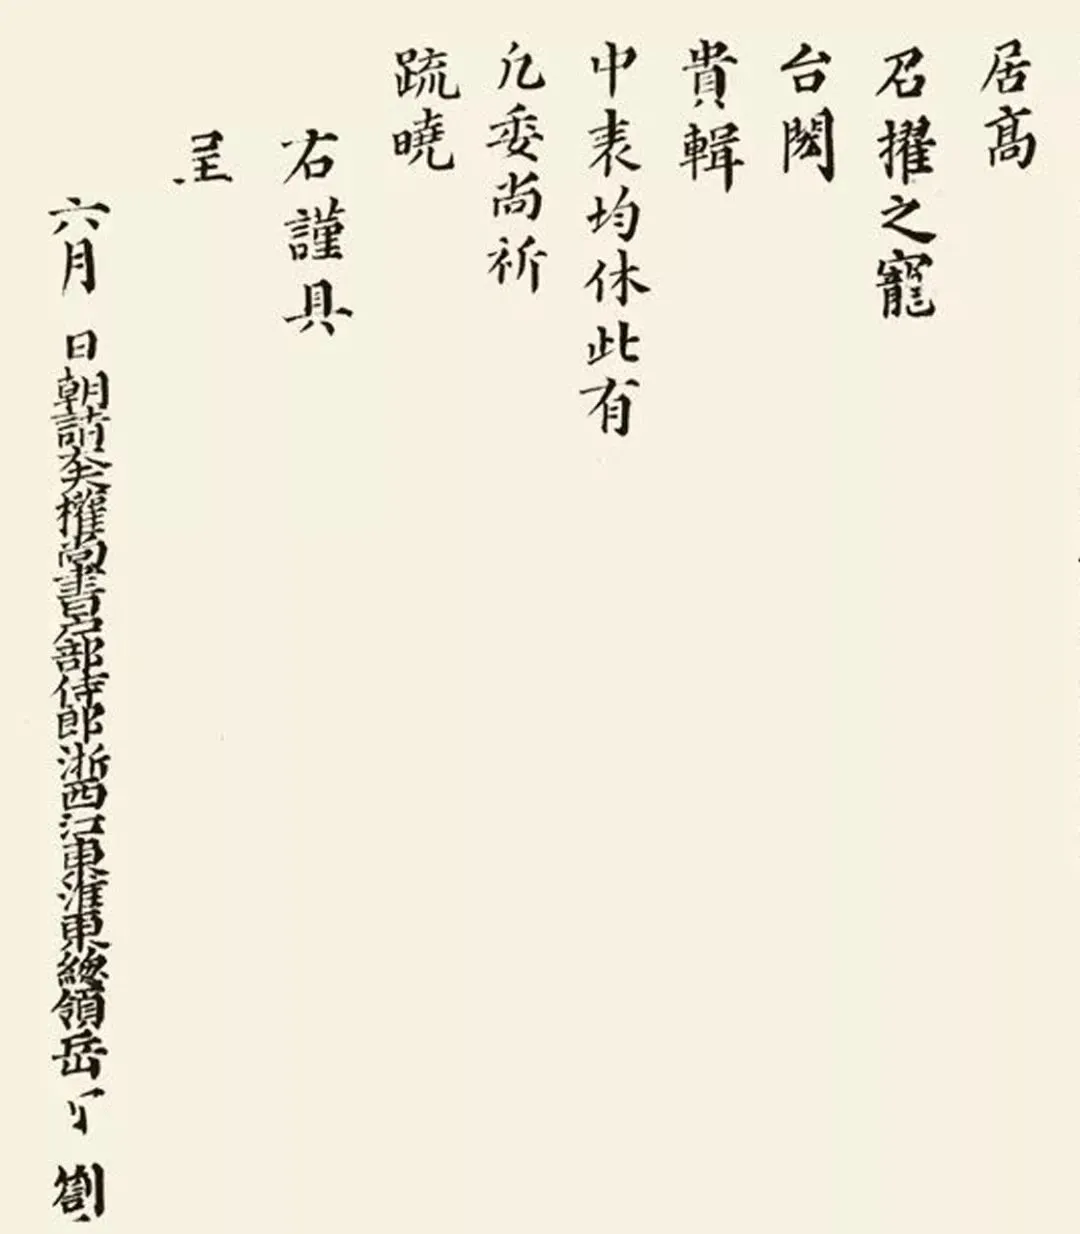 居高
召擢之寵
台閎
貴輯
中表均休此有
凡委尚祈
䟽曉
右謹具
呈
六月 日朝請大夫權尚書户部侍郎浙西江東淮東總領岳 劄